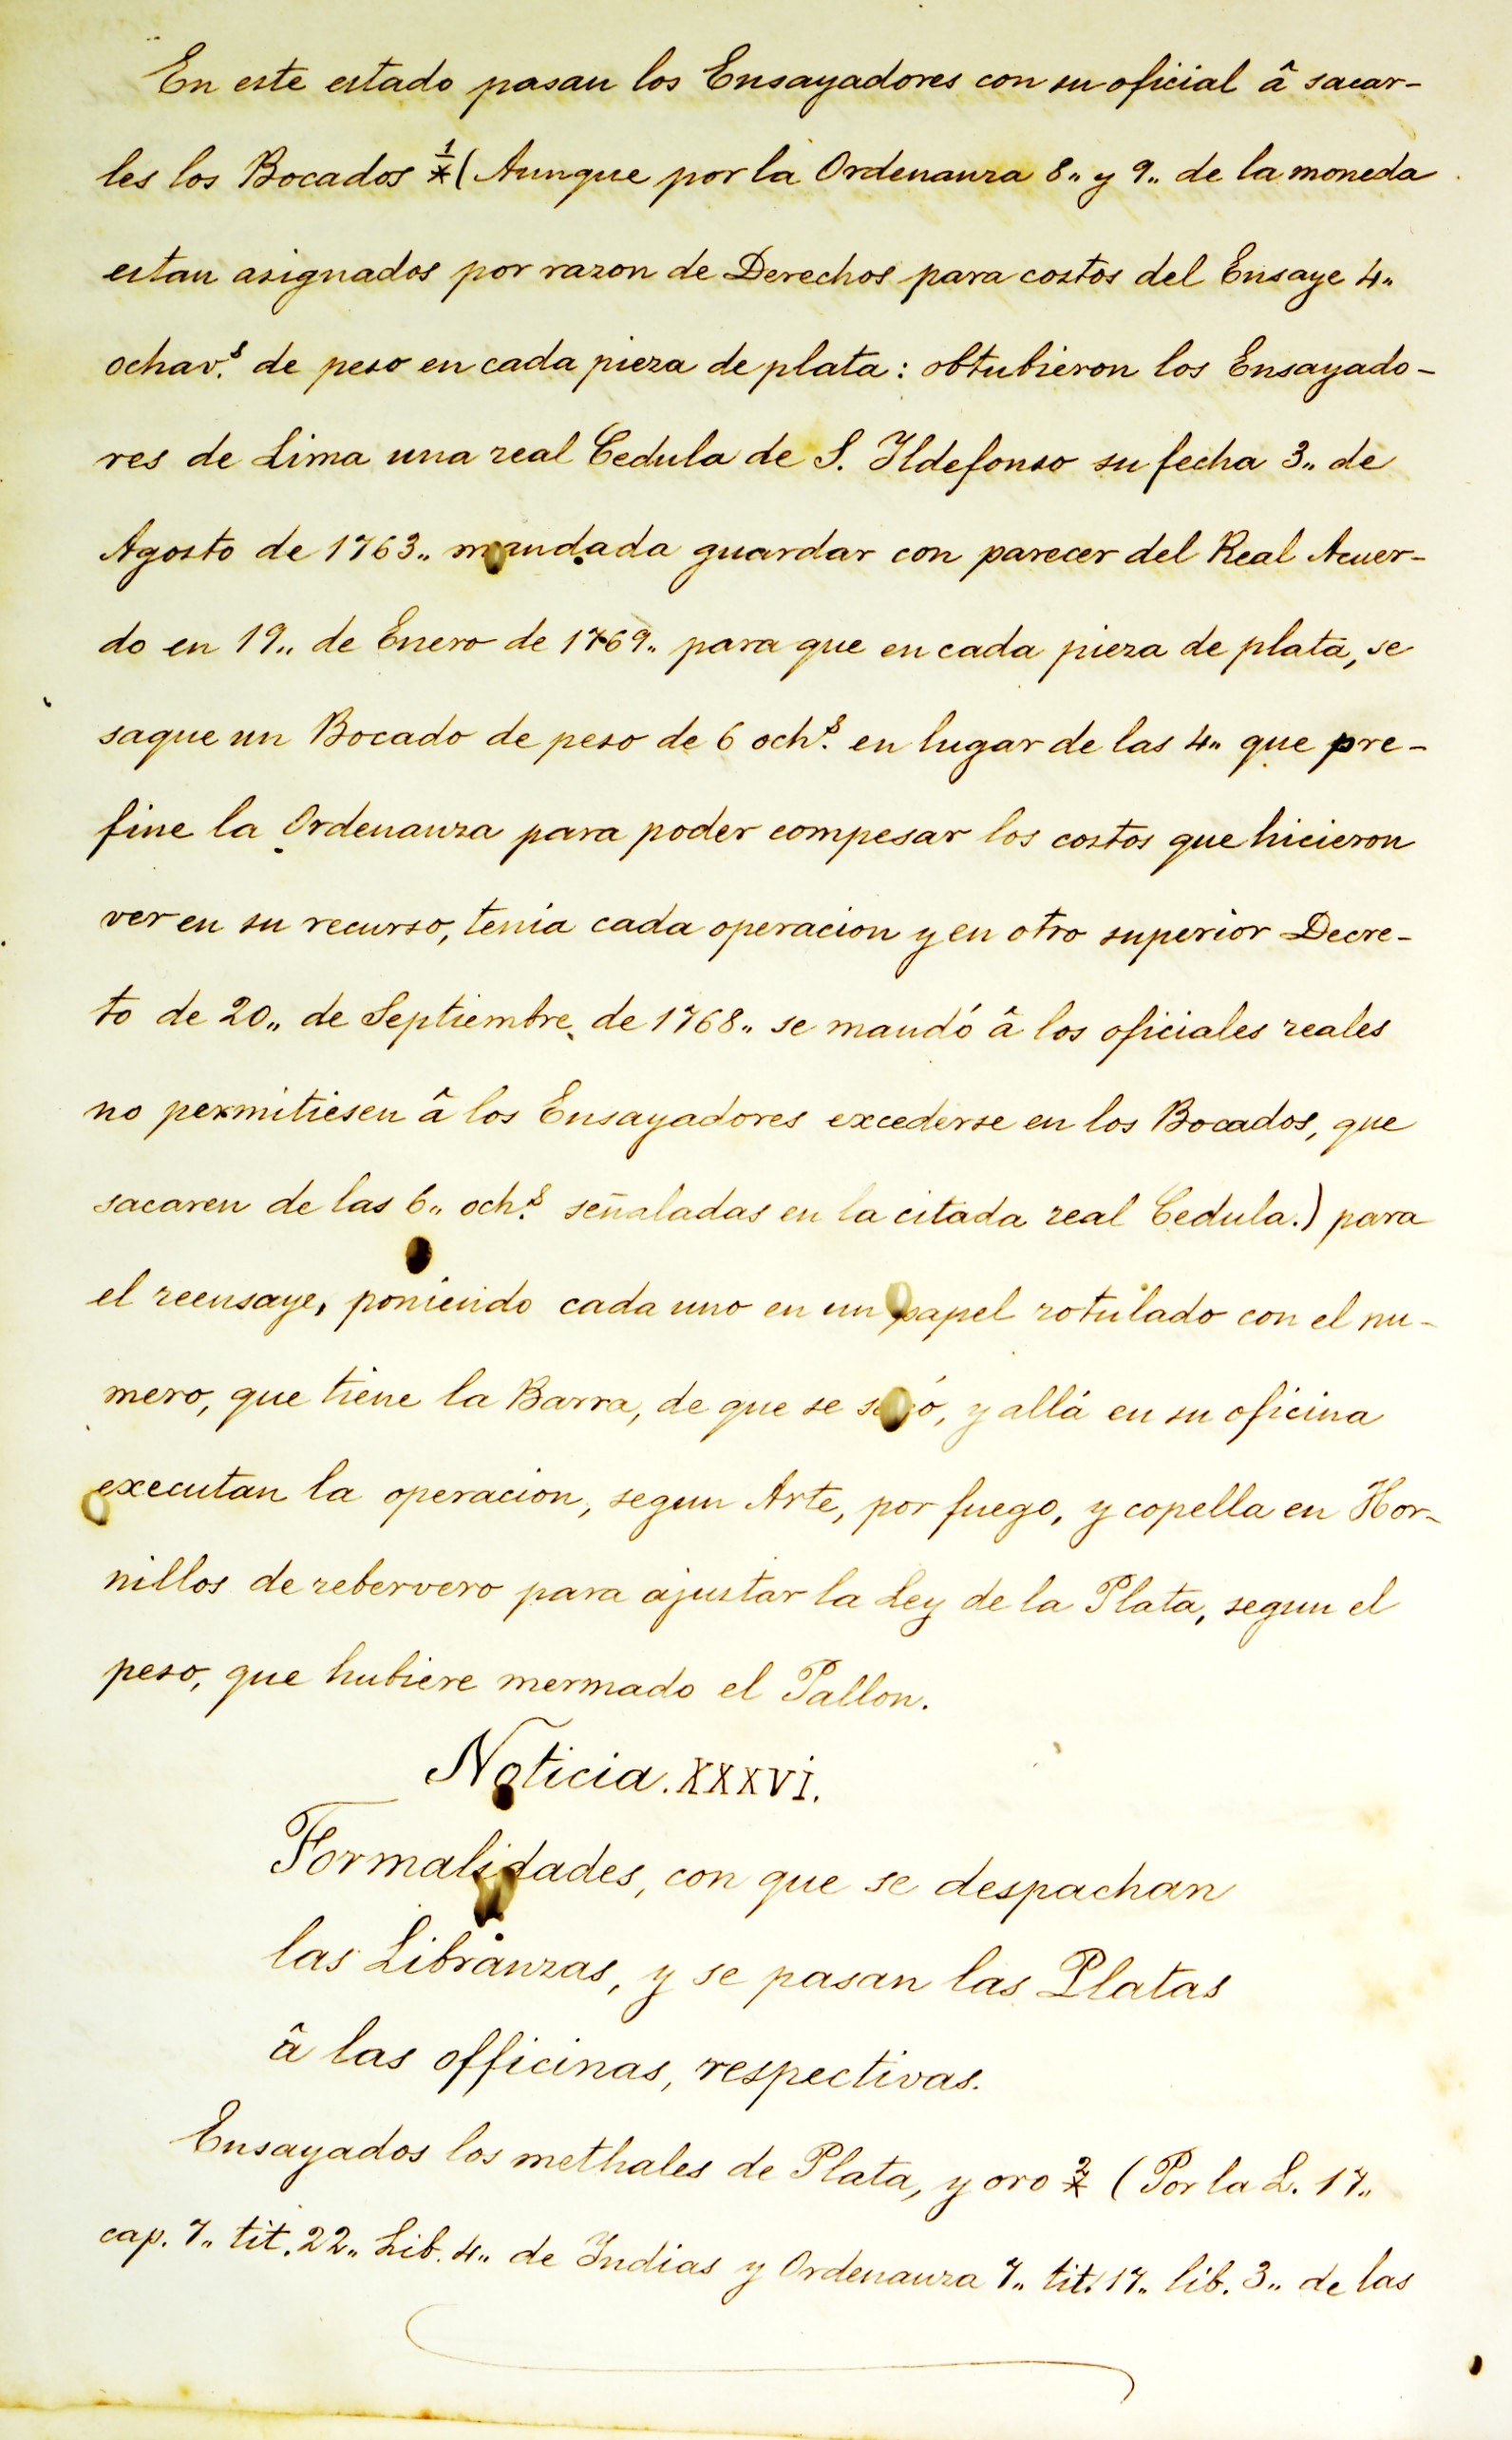 En este estado pasan los Ensayadores con su oficial â sacar-
les los Bocados 1/* (Aunque por la Ordenanza 8,, y 9,, de la moneda
estan asignados por razon de Derechos para costos del Ensaye 4,,
ochav.s de peso en cada pieza de plata: obtubieron los Ensayado-
res de Lima una real Cedula de S. Yldefonso su fecha 3,, de
Agosto de 1763,, mandada guardar con parecer del Real Acuer-
do en 19,, de Enero de 1769,, para que en cada pieza de plata, se
saque un Bocado de peso de 6 och.s en lugar de las 4,, que pre-
fine la Ordenanza para poder compesar los costos que hicieron
ver en su recurso, tenia cada operacion y en otro superior Decre-
to de 20,, de Septiembre de 1768,, se mandó â los oficiales reales
no permitiesen â los Ensayadores excederse en los Bocados, que
sacaren de las 6,, och.s señaladas en la citada real Cedula.) para
el reensaye, poniendo cada uno en un papel rotulado con el nu-
mero, que tiene la Barra, de que se sacó, y allá en su oficina
executan la operacion, segun Arte, por fuego, y copella en Hor-
nillos de rebervero para ajustar la Ley de la Plata, segun el
peso, que hubiere mermado el Pallon.
Noticia. XXXVI.
Formalidades, con que se despachan
las Libranzas, y se pasan las Platas
â las officinas, respectivas.
Ensayados los methales de Plata, y oro 2/* (Por la L. 17,,
cap. 7,, tit. 22,, Lib. 4,, de Yndias y Ordenanza 7,, tit. 17,, lib. 3,, de las